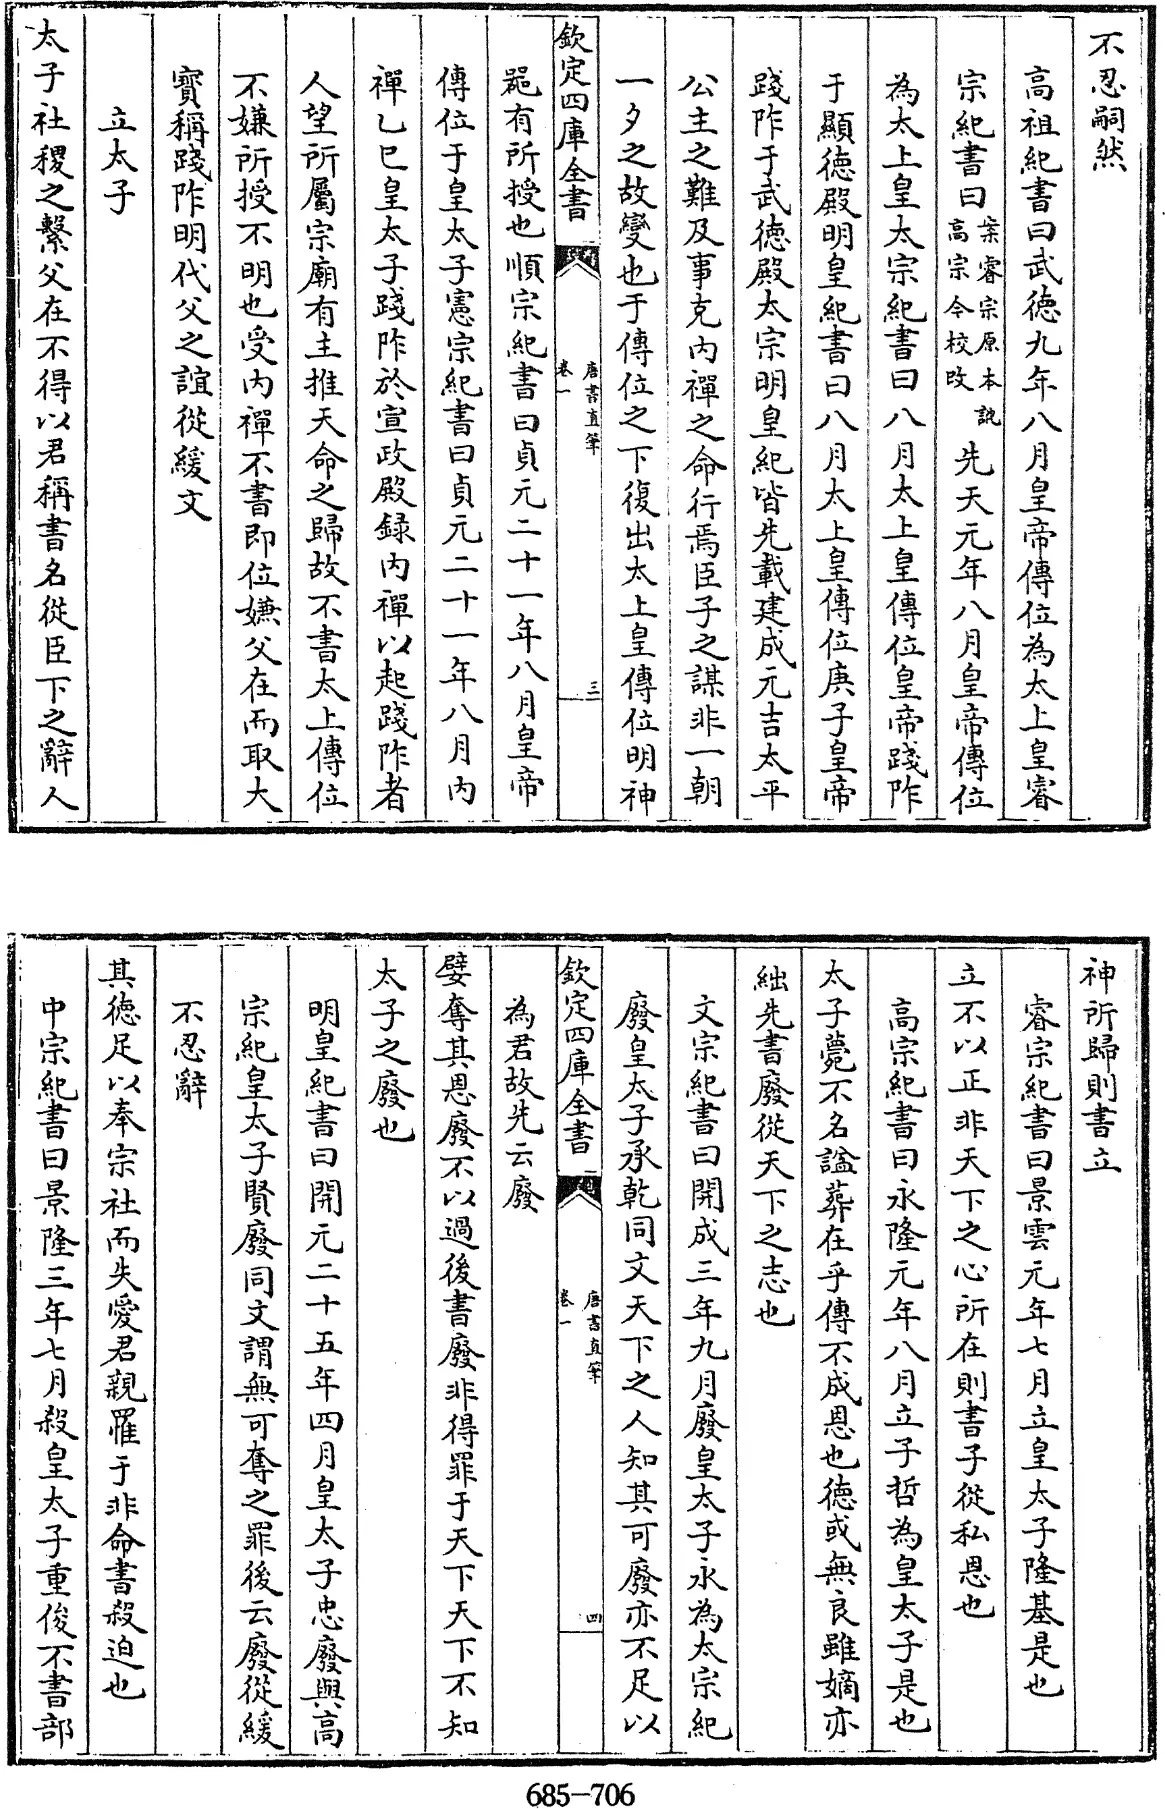 不忍嗣然
高祖紀書曰武徳九年八月皇帝傳位為太上皇睿
宗紀書曰案睿宗原本訛高宗今校改先天元年八月皇帝傳位
為太上皇太宗紀書曰八月太上皇傳位皇帝踐阼
于顯徳殿明皇紀書曰八月太上皇傳位庚子皇帝
踐阼于武徳殿太宗明皇紀皆先載建成元吉太平
公主之難及事克内禪之命行焉臣子之謀非一朝
一夕之故變也于傳位之下復出太上皇傳位明神
欽定四庫全書
唐書直筆
卷一
三
器有所授也順宗紀書曰貞元二十一年八月皇帝
傳位于皇太子憲宗紀書曰貞元二十一年八月内
禪乙巳皇太子踐阼於宣政殿録内禪以起踐阼者
人望所屬宗廟有主推天命之歸故不書太上傳位
不嫌所授不明也受内禪不書即位嫌父在而取大
寳稱踐阼明代父之誼從緩文
立太子
太子社稷之繫父在不得以君稱書名從臣下之辭人
神所歸則書立
睿宗紀書曰景雲元年七月立皇太子隆基是也
立不以正非天下之心所在則書子從私恩也
高宗紀書曰永隆元年八月立子哲為皇太子是也
太子薨不名諡葬在乎傳不成恩也徳或無良雖嫡亦
絀先書廢從天下之志也
文宗紀書曰開成三年九月廢皇太子永為太宗紀
廢皇太子承乾同文天下之人知其可廢亦不足以
欽定四庫全書
唐書直筆
卷一
四
為君故先云廢
嬖奪其恩廢不以過後書廢非得罪于天下天下不知
太子之廢也
明皇紀書曰開元二十五年四月皇太子忠廢與高
宗紀皇太子賢廢同文謂無可奪之罪後云廢從緩
不忍辭
其徳足以奉宗社而失愛君親罹于非命書殺迫也
中宗紀書曰景隆三年七月殺皇太子重俊不書部
685-706